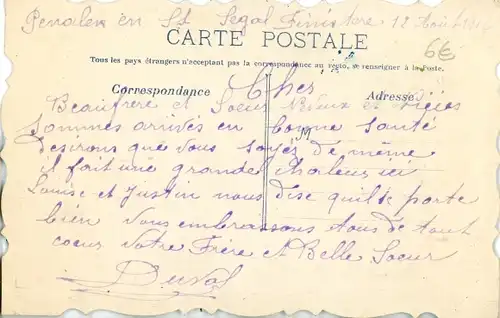 Penalen en St Segal Finistere 12 Août
CARTE POSTALE
6€
Tous les pays étrangers n'acceptent pas la correspondance au recto, se renseigner à la Poste.
Cher
Correspondance
Adresse
Beaufrere et Soeur Neveux et Nieces
Sommes arrivés en bonne santé
desirons que vous soyés de même
il fait une grande chaleur ici
Louise et Justin nous dise quil se porte
bien Vous embrassons tous de tout
coeur Votre Frère et Belle Soeur
Duval